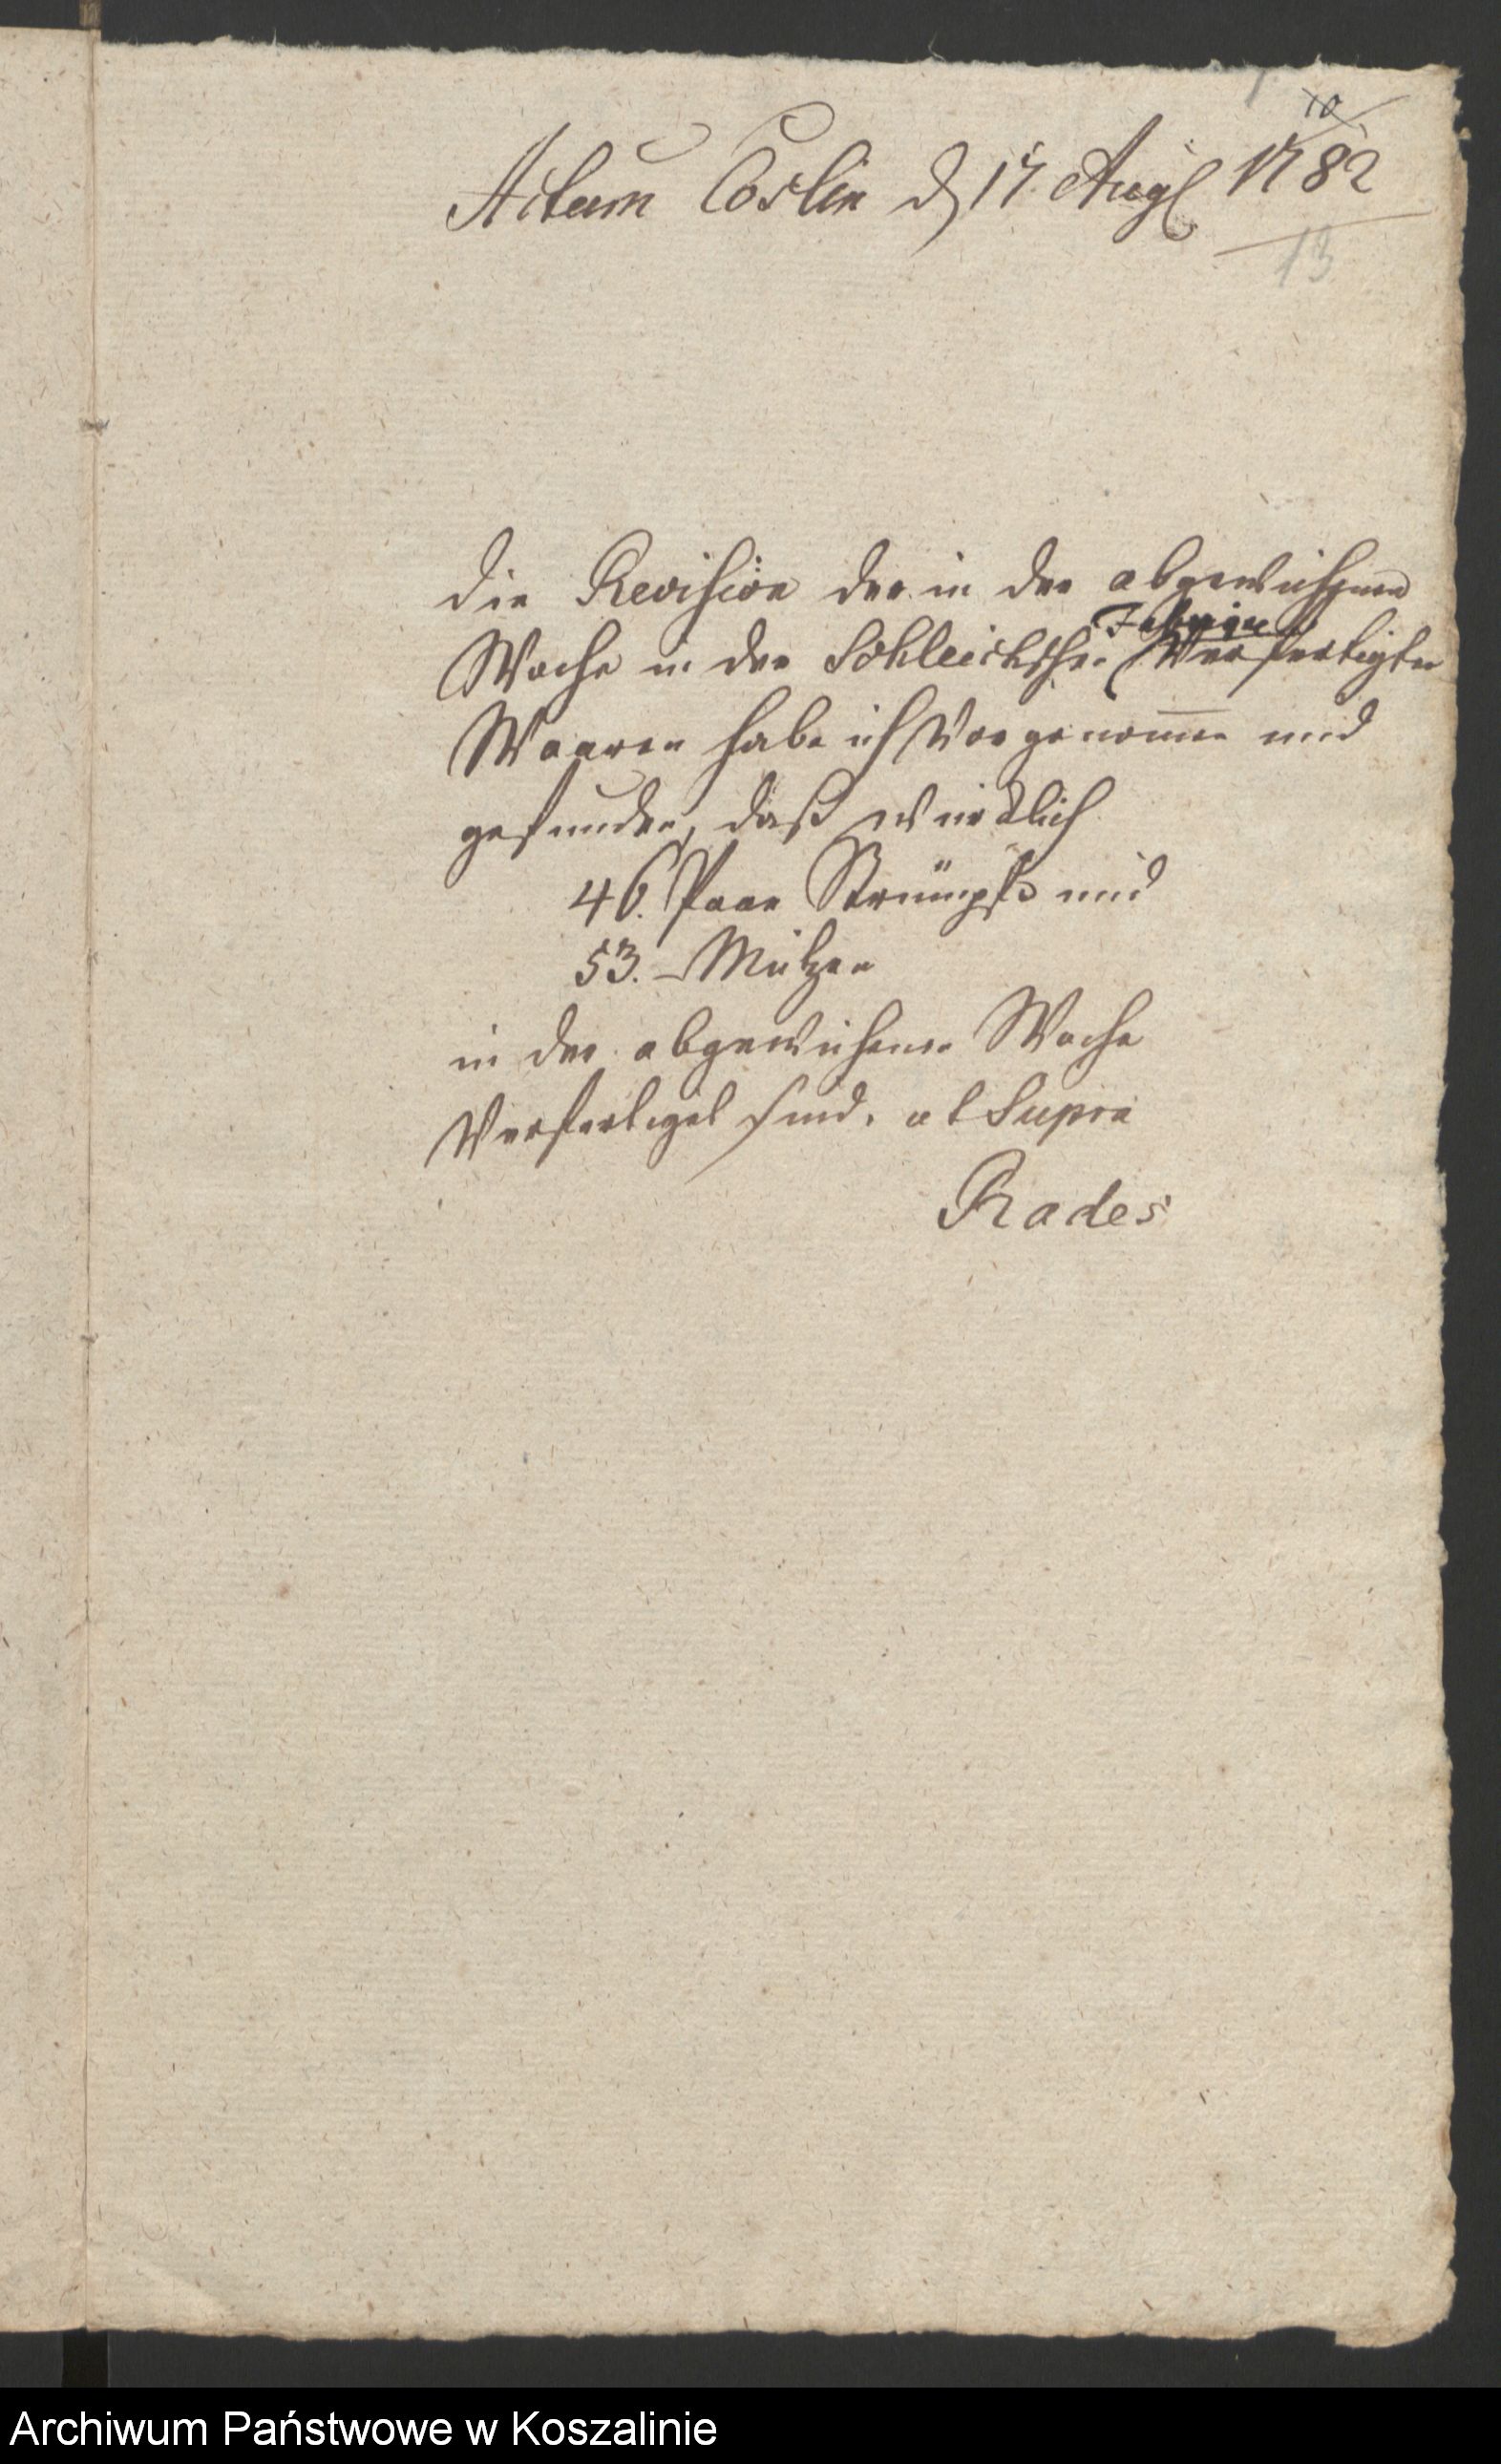 10
Actum Cöslin d 17 Aug 1782
13
Die Revision der in der abgewichenen
Fabrique
Woche in der Schleichschen Verfertigten
Waaren habe ich Vorgenommen und
gefunden, daß würcklich
46. Paar Strümpfe und
53. – Mützen
in der abgewichenen Woche
Verfertiget sind. ut Supra
Rades
Archiwum Państwowe w Koszalinie